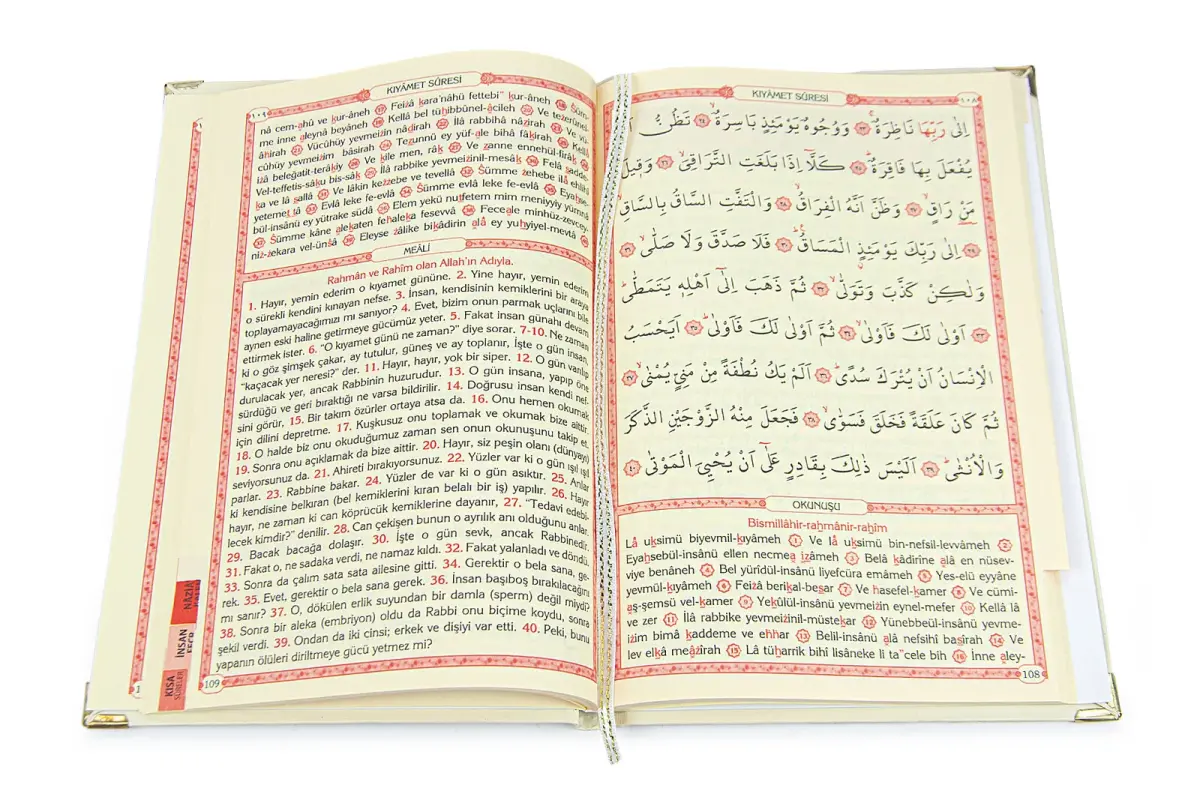 KIYÂMET SÛRESİ
١٠٨
اِلٰى رَبِّهَا نَاظِرَةٌۚ ﴿٢٣﴾ وَوُجُوهٌ يَوْمَئِذٍ بَاسِرَةٌۙ ﴿٢٤﴾ تَظُنُّ اَنْ
يُفْعَلَ بِهَا فَاقِرَةٌۜ ﴿٢٥﴾ كَلَّٓا اِذَا بَلَغَتِ التَّرَاقِيَۙ ﴿٢٦﴾ وَقِيلَ
مَنْ رَاقٍۙ ﴿٢٧﴾ وَظَنَّ اَنَّهُ الْفِرَاقُۙ ﴿٢٨﴾ وَالْتَفَّتِ السَّاقُ بِالسَّاقِۙ
﴿٢٩﴾ اِلٰى رَبِّكَ يَوْمَئِذٍ الْمَسَاقُۜ ﴿٣٠﴾ فَلَا صَدَّقَ وَلَا صَلّٰىۙ ﴿٣١﴾
وَلٰكِنْ كَذَّبَ وَتَوَلّٰىۙ ﴿٣٢﴾ ثُمَّ ذَهَبَ اِلٰٓى اَهْلِه۪ يَتَمَطّٰىۜ
﴿٣٣﴾ اَوْلٰى لَكَ فَاَوْلٰىۙ ﴿٣٤﴾ ثُمَّ اَوْلٰى لَكَ فَاَوْلٰىۜ ﴿٣٥﴾ اَيَحْسَبُ
الْاِنْسَانُ اَنْ يُتْرَكَ سُدًىۜ ﴿٣٦﴾ اَلَمْ يَكُ نُطْفَةً مِنْ مَنِيٍّ يُمْنٰىۙ ﴿٣٧﴾
ثُمَّ كَانَ عَلَقَةً فَخَلَقَ فَسَوّٰىۙ ﴿٣٨﴾ فَجَعَلَ مِنْهُ الزَّوْجَيْنِ الذَّكَرَ
وَالْاُنْثٰىۜ ﴿٣٩﴾ اَلَيْسَ ذٰلِكَ بِقَادِرٍ عَلٰٓى اَنْ يُحْيِيَ الْمَوْتٰى ﴿٤٠﴾
OKUNUŞU
Bismillâhir-rahmânir-rahîm
Lâ uksimü biyevmil-kıyâmeh 1 Ve lâ uksimü bin-nefsil-levvâmeh 2
Eyahsebül-insânü ellen necmea ızâmeh 3 Belâ kâdirîne alâ en nüsev-
viye benâneh 4 Bel yürîdül-insânü liyefcüra emâmeh 5 Yes-elü eyyâne
yevmül-kıyâmeh 6 Feizâ berikal-besar 7 Ve hasefel-kamer 8 Ve cümi-
aş-şemsü vel-kamer 9 Yekûlül-insânü yevmeizin eynel-mefer 10 Kellâ lâ
ve zer 11 İlâ rabbike yevmeizinil-müstekar 12 Yünebbeül-insânü yevme-
izim bimâ kaddeme ve ehhar 13 Belil-insânü alâ nefsihî basîrah 14 Ve
lev elkâ meâzîrah 15 Lâ tüharrik bihî lisâneke li ta"cele bih 16 İnne aley-
108
KIYÂMET SÛRESİ
١٠٩
nâ cem-ahû ve kur-âneh 17 Feizâ kara'nâhü fettebi" kur-âneh 18 Süm-
me inne aleynâ beyâneh 19 Kellâ bel tühibbûnel-âcileh 20 Ve tezerûnel-
âhirah 21 Vücûhüy yevmeizin nâdirah 22 İlâ rabbihâ nâzirah 23 Ve vü-
cûhüy yevmeizim bâsirah 24 Tezunnü ey yüf-ale bihâ fâkirah 25 Kellâ
izâ beleğatit-terâkıy 26 Ve kîle men, râk 27 Ve zanne ennehül-firâk 28
Vel-teffetis-sâku bis-sâk 29 İlâ rabbike yevmeizinil-mesâk 30 Felâ sadde-
ka ve lâ sallâ 31 Ve lâkin kezzebe ve tevellâ 32 Sümme zehebe ilâ ehlihî
yetemettâ 33 Evlâ leke fe-evlâ 34 Sümme evlâ leke fe-evlâ 35 Eyahse-
bül-insânü ey yütrake südâ 36 Elem yekü nutfetem mim meniyyiy yümnâ
37 Sümme kâne alekaten fehaleka fesevvâ 38 Feceale minhüz-zevcey-
niz-zekara vel-ünsâ 39 Eleyse zâlike bikâdirin alâ ey yuhyiyel-mevtâ 40
MEÂLİ
Rahmân ve Rahîm olan Allah'ın Adıyla.
1. Hayır, yemin ederim o kıyamet gününe. 2. Yine hayır, yemin ederim
o sürekli kendini kınayan nefse. 3. İnsan, kendisinin kemiklerini bir araya
toplayamayacağımızı mı sanıyor? 4. Evet, bizim onun parmak uçlarını bile
aynen eski haline getirmeye gücümüz yeter. 5. Fakat insan günahı devam
ettirmek ister. 6. "O kıyamet günü ne zaman?" diye sorar. 7-10. Ne zaman
ki o göz şimşek çakar, ay tutulur, güneş ve ay toplanır, İşte o gün insan,
"kaçacak yer neresi?" der. 11. Hayır, hayır, yok bir siper. 12. O gün varılıp
durulacak yer, ancak Rabbinin huzurudur. 13. O gün insana, yapıp öne
sürdüğü ve geri bıraktığı ne varsa bildirilir. 14. Doğrusu insan kendi nef-
sini görür, 15. Bir takım özürler ortaya atsa da. 16. Onu hemen okumak
için dilini depretme. 17. Kuşkusuz onu toplamak ve okumak bize aittir.
18. O halde biz onu okuduğumuz zaman sen onun okunuşunu takip et.
19. Sonra onu açıklamak da bize aittir. 20. Hayır, siz peşin olanı (dünyayı)
seviyorsunuz da. 21. Ahireti bırakıyorsunuz. 22. Yüzler var ki o gün ışıl ışıl
parlar. 23. Rabbine bakar. 24. Yüzler de var ki o gün asıktır. 25. Anlar
ki kendisine belkıran (bel kemiklerini kıran belalı bir iş) yapılır. 26. Hayır
hayır, ne zaman ki can köprücük kemiklerine dayanır, 27. "Tedavi edebi-
lecek kimdir?" denilir. 28. Can çekişen bunun o ayrılık anı olduğunu anlar.
29. Bacak bacağa dolaşır. 30. İşte o gün sevk, ancak Rabbinedir.
31. Fakat o, ne sadaka verdi, ne namaz kıldı. 32. Fakat yalanladı ve döndü.
33. Sonra da çalım sata sata ailesine gitti. 34. Gerektir o bela sana, ge-
rek. 35. Evet, gerektir o bela sana gerek. 36. İnsan başıboş bırakılacağını
mı sanır? 37. O, dökülen erlik suyundan bir damla (sperm) değil miydi?
38. Sonra bir aleka (embriyon) oldu da Rabbi onu biçime koydu, sonra
şekil verdi. 39. Ondan da iki cinsi; erkek ve dişiyi var etti. 40. Peki, bunu
yapanın ölüleri diriltmeye gücü yetmez mi?
109
NÂZİÂ
İNSAN
KISA
SÛRELER